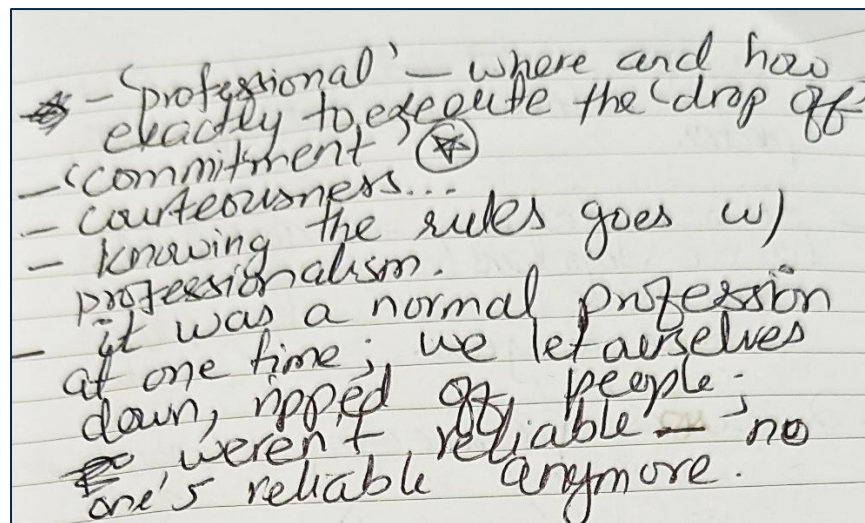 - 'professional' - where and how
exactly to execute the 'drop off'
- 'commitment'
- courteousness...
- knowing the rules goes w/
professionalism.
- it was a normal profession
at one time; we let ourselves
down, ripped off people;
weren't reliable - no
one's reliable anymore.